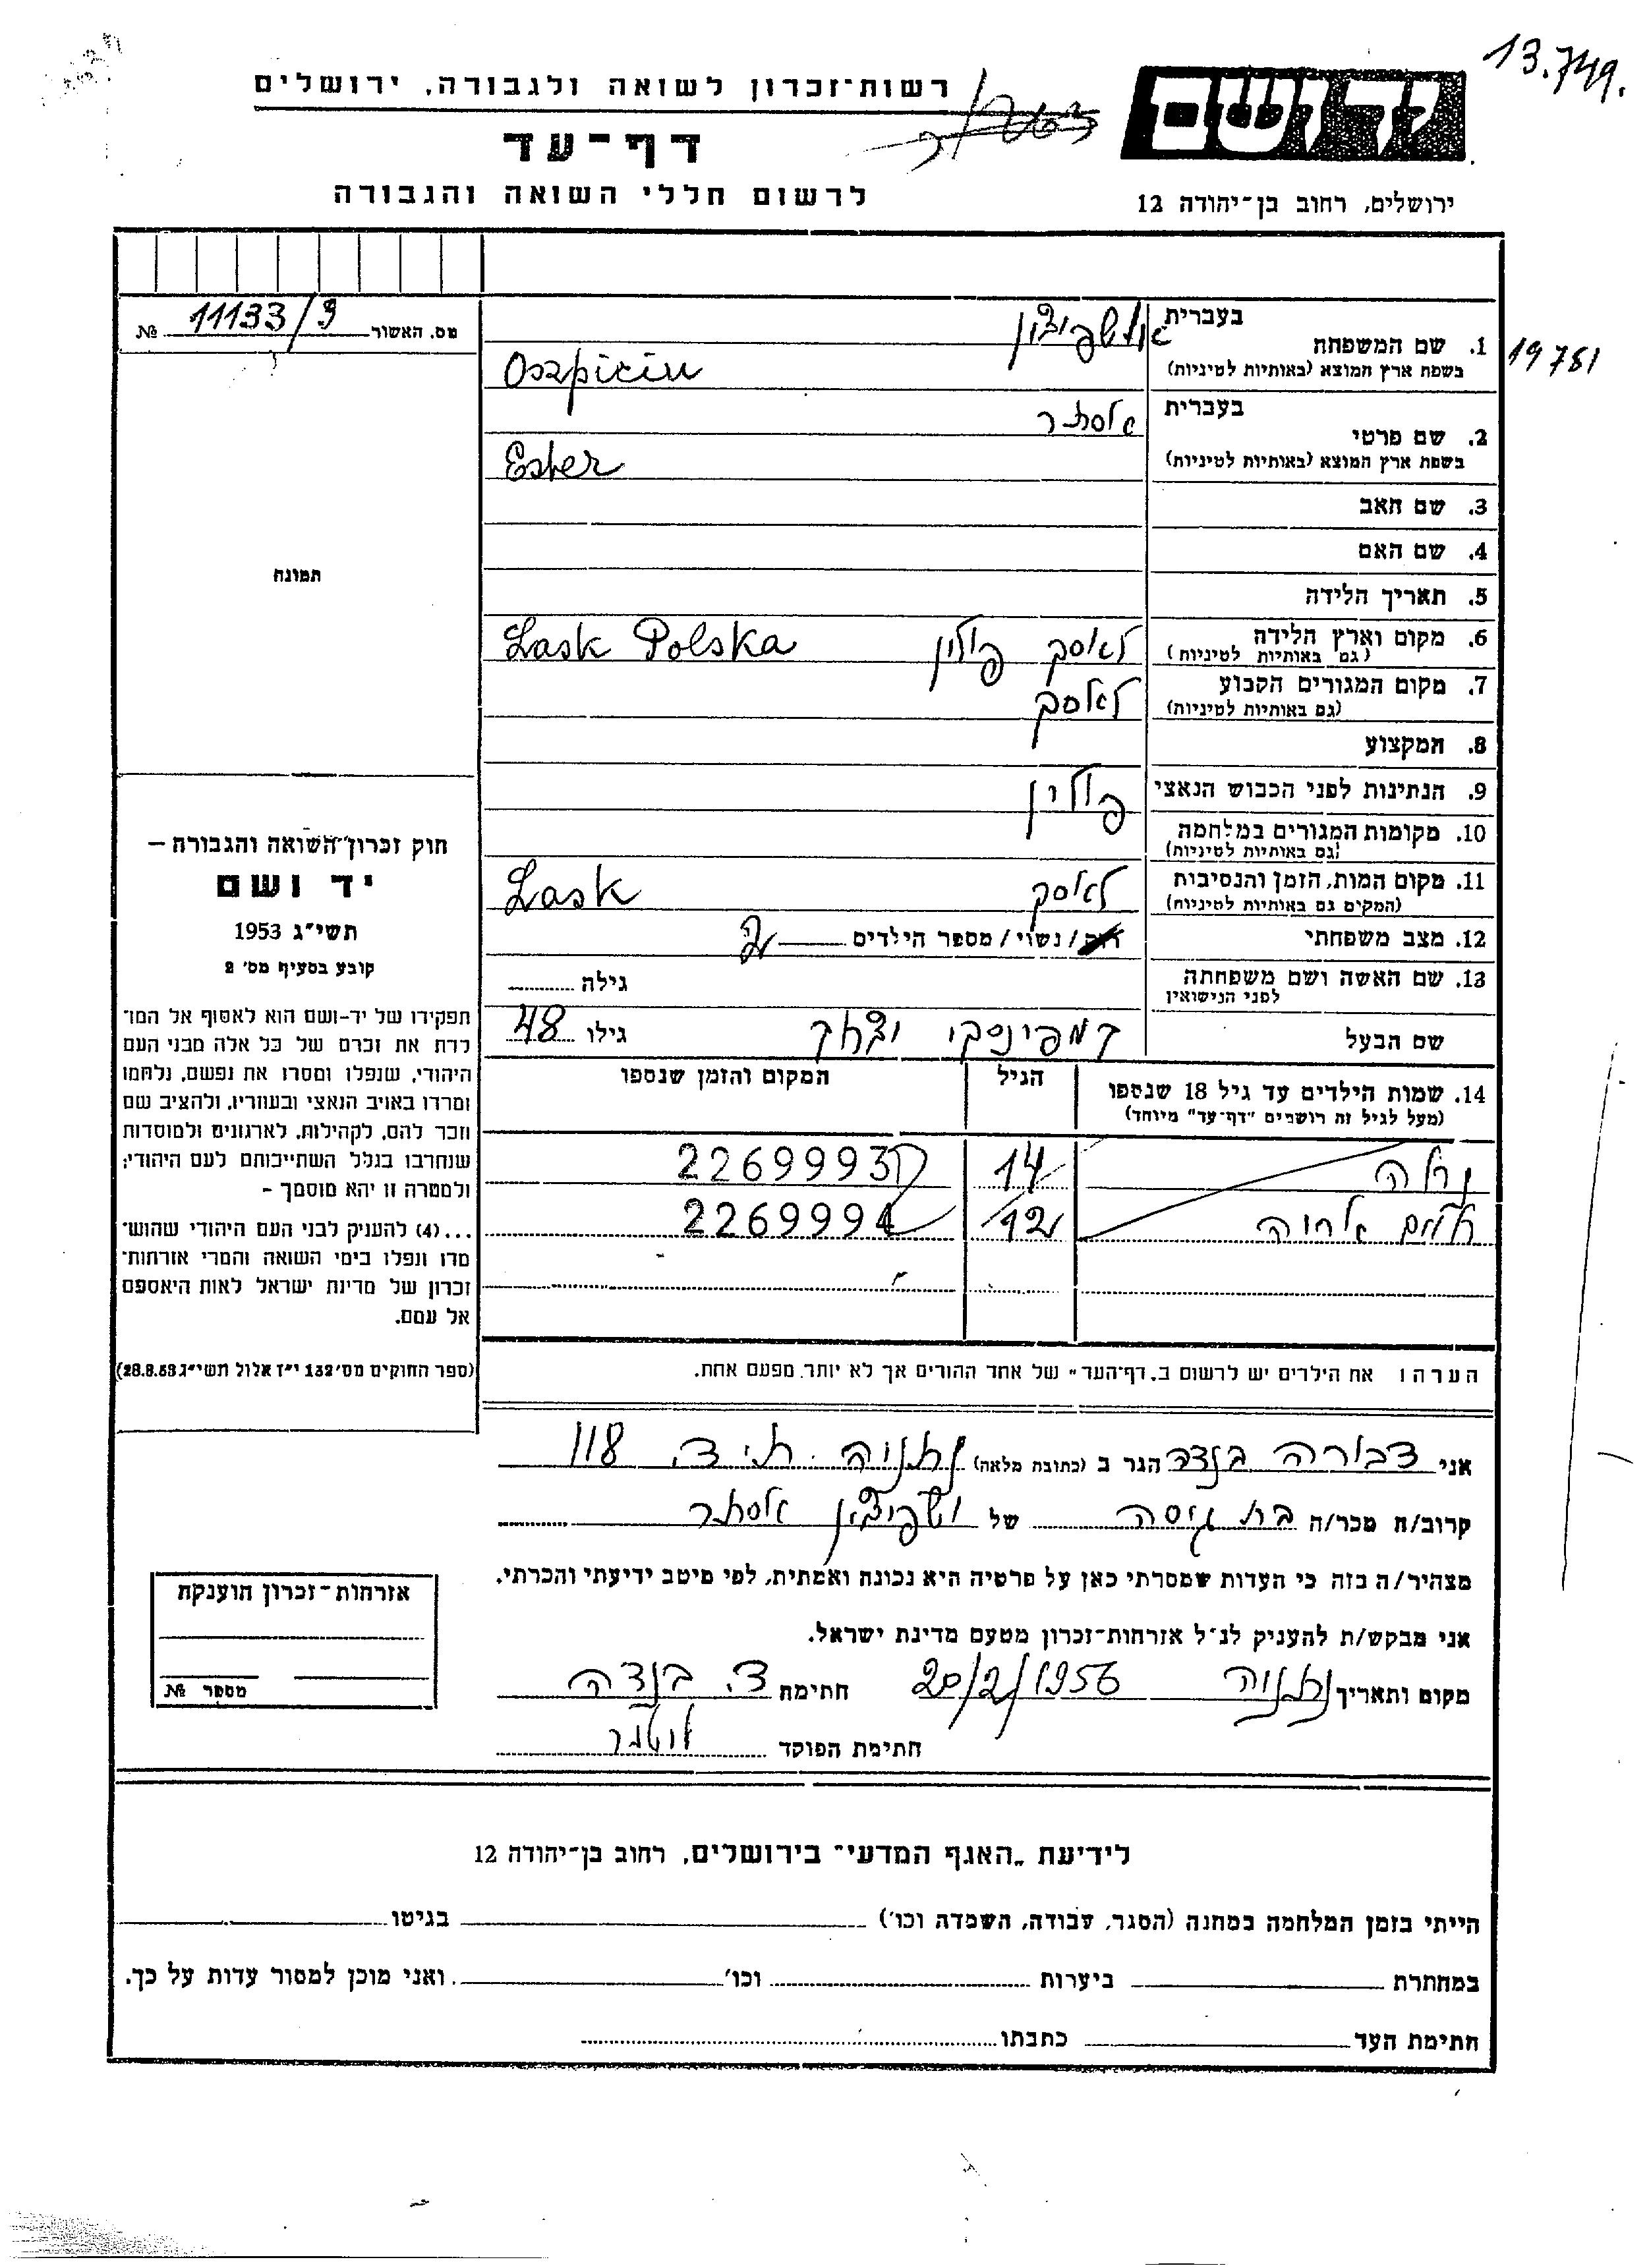 13.749.
רשות־זכרון לשואה ולגבורה, ירושלים
יד ושם
דף־עד
לרשום חללי השואה והגבורה
ירושלים, רחוב בן־יהודה 12
מס. האשור 11133/9 №
בעברית
1. שם המשפחה
בשפת ארץ המוצא (באותיות לטיניות) Oszpicin
19781
בעברית אסתר
2. שם פרטי
בשפת ארץ המוצא (באותיות לטיניות) Ester
3. שם האב
4. שם האם
תמונה
5. תאריך הלידה
6. מקום וארץ הלידה לאסק פולין Łask Polska
(גם באותיות לטיניות)
7. מקום המגורים הקבוע לאסק
(גם באותיות לטיניות)
8. המקצוע
9. הנתינות לפני הכבוש הנאצי פולין
10. מקומות המגורים במלחמה
(גם באותיות לטיניות)
11. מקום המות, הזמן והנסיבות לאסק Łask
(המקום גם באותיות לטיניות)
12. מצב משפחתי / נשוי / מספר הילדים 2
13. שם האשה ושם משפחתה גילה
לפני הנישואין
שם הבעל יצחק גילו 48
14. שמות הילדים עד גיל 18 שנספו הגיל המקום והזמן שנספו
(מעל לגיל זה רושמים "דף־עד" מיוחד)
14 2269993
12 2269994
הערה: את הילדים יש לרשום ב„דף־העד" של אחד ההורים אך לא יותר מפעם אחת.
חוק זכרון השואה והגבורה –
יד ושם
תשי"ג 1953
קובע בסעיף מס' 2
תפקידו של יד-ושם הוא לאסוף אל המו־
לדת את זכרם של כל אלה מבני העם
היהודי, שנפלו ומסרו את נפשם, נלחמו
ומרדו באויב הנאצי ובעוזריו, ולהציב שם
וזכר להם, לקהילות, לארגונים ולמוסדות
שנחרבו בגלל השתייכותם לעם היהודי;
ולמטרה זו יהא מוסמך –
...(4) להעניק לבני העם היהודי שהוש־
מדו ונפלו בימי השואה והמרי אזרחות־
זכרון של מדינת ישראל לאות היאספם
אל עמם.
(ספר החוקים מס' 132 י"ז אלול תשי"ג 28.8.53)
אני דבורה בנדה הגר ב (כתובת מלאה) נתניה 118
קרוב/ה מכר/ה בת גיסה של אסתר
מצהיר/ה בזה כי העדות שמסרתי כאן על פרטיה היא נכונה ואמתית, לפי מיטב ידיעתי והכרתי.
אני מבקש/ת להעניק לנ"ל אזרחות־זכרון מטעם מדינת ישראל.
מקום ותאריך נתניה 20/2/1956 חתימה ד. בנדה
חתימת הפוקד
אזרחות־זכרון הוענקה
מספר №
לידיעת „האגף המדעי" בירושלים, רחוב בן־יהודה 12
הייתי בזמן המלחמה במחנה (הסגר, עבודה, השמדה וכו') בגיטו
במחתרת ביערות וכו' ואני מוכן למסור עדות על כך.
חתימת העד כתבתו